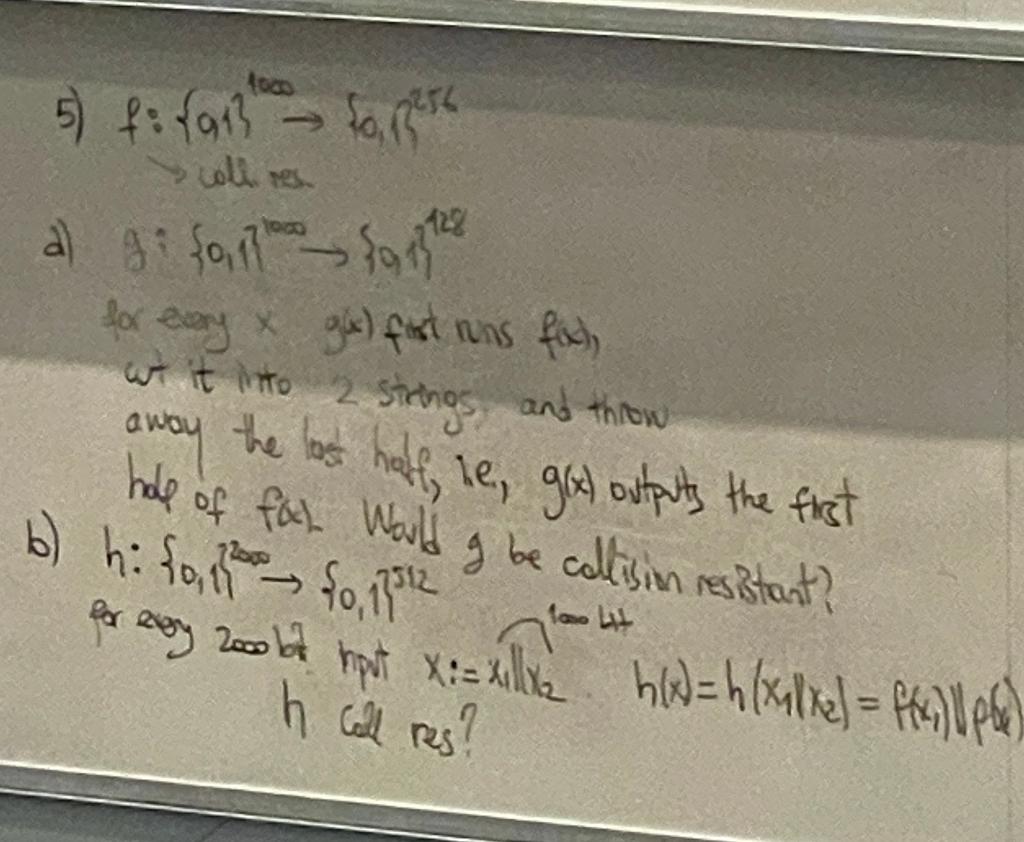 5) f: {0,1}^1000 → {0,1}^256
→ coll. res.
a) g: {0,1}^1000 → {0,1}^128
for every x g(x) first runs f(x),
cut it into 2 strings, and throw
away the last half, i.e., g(x) outputs the first
half of f(x). Would g be collision resistant?
b) h: {0,1}^2000 → {0,1}^512
1000 bit
for every 2000 bit input x := x₁||x₂ h(x) = h(x₁||x₂) = f(x₁)||f(x₂)
h coll res?